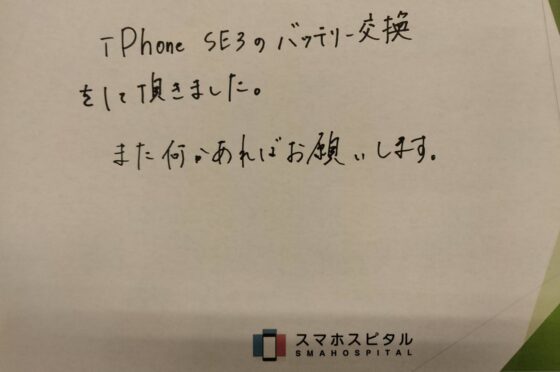 iPhone SE3のバッテリー交換
をして頂きました。
また何かあればお願いします。
スマホスピタル
SMAHOSPITAL